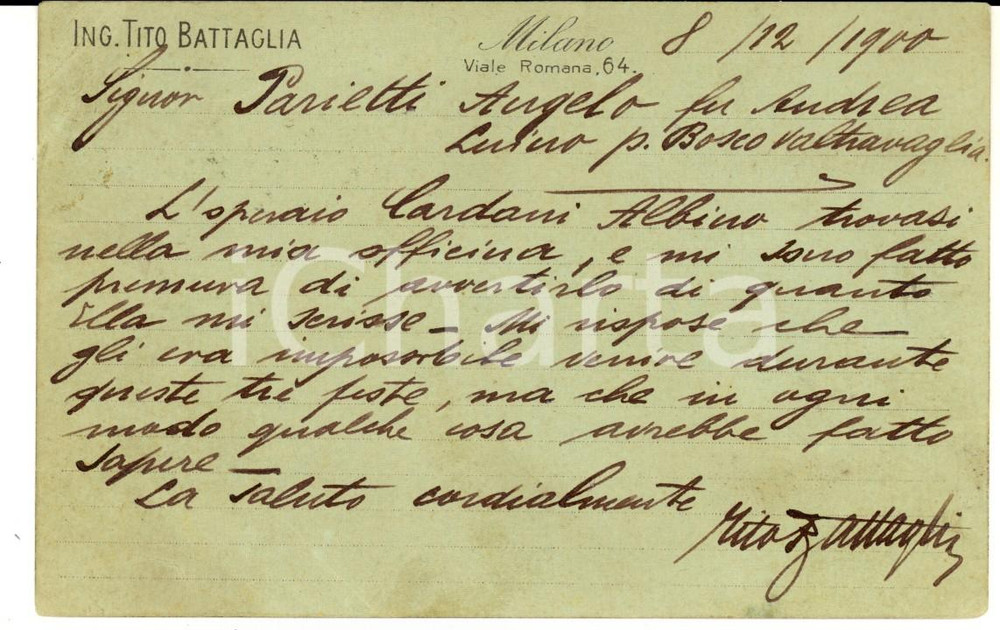 ING. TITO BATTAGLIA
Milano 8/12/1900
Viale Romana, 64.
Signor Parietti Angelo fu Andrea
Luino p. Bosco Valtravaglia.
L'operaio Cardani Albino trovasi
nella mia officina, e mi sono fatto
premura di avvertirlo di quanto
Ella mi scrisse – Mi rispose che
gli era impossibile venire durante
queste tre feste, ma che in ogni
modo qualche cosa avrebbe fatto
sapere –
La saluto cordialmente
Tito Battaglia
iCharta